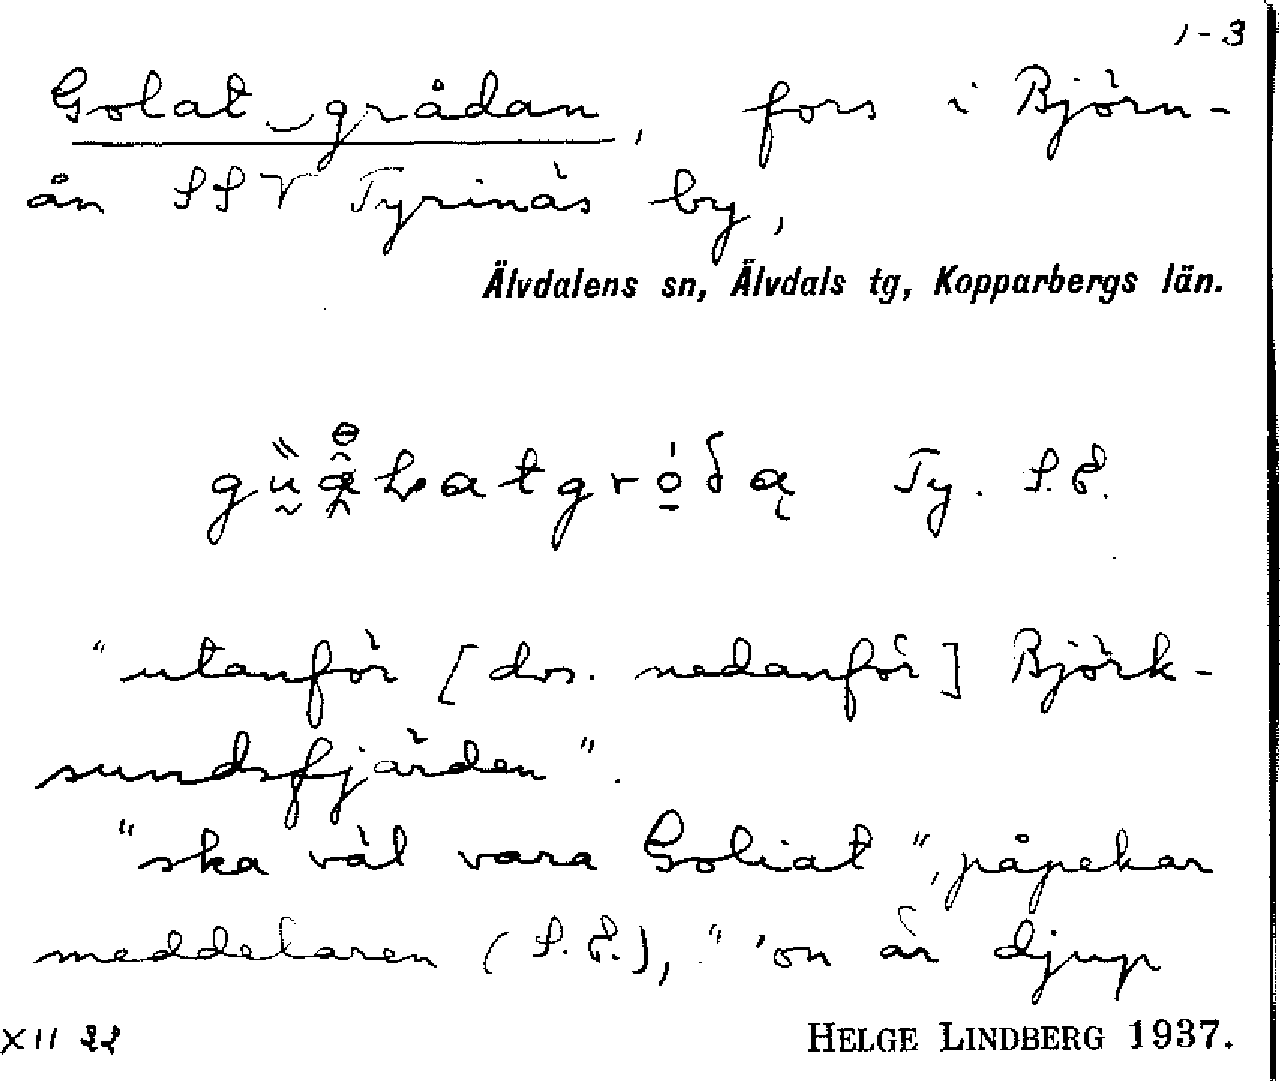 1-3
Golat‿grådan, fors i Björn-
ån SSV Tyrinäs by,
Älvdalens sn, Älvdals tg, Kopparbergs län.
Ty. S.E.
"utanför [dvs. nedanför] Björk-
sundsfjärden".
"ska väl vara Goliat", påpekar
meddelaren (S.E.), "'on är djup
XII 22
HELGE LINDBERG 1937.